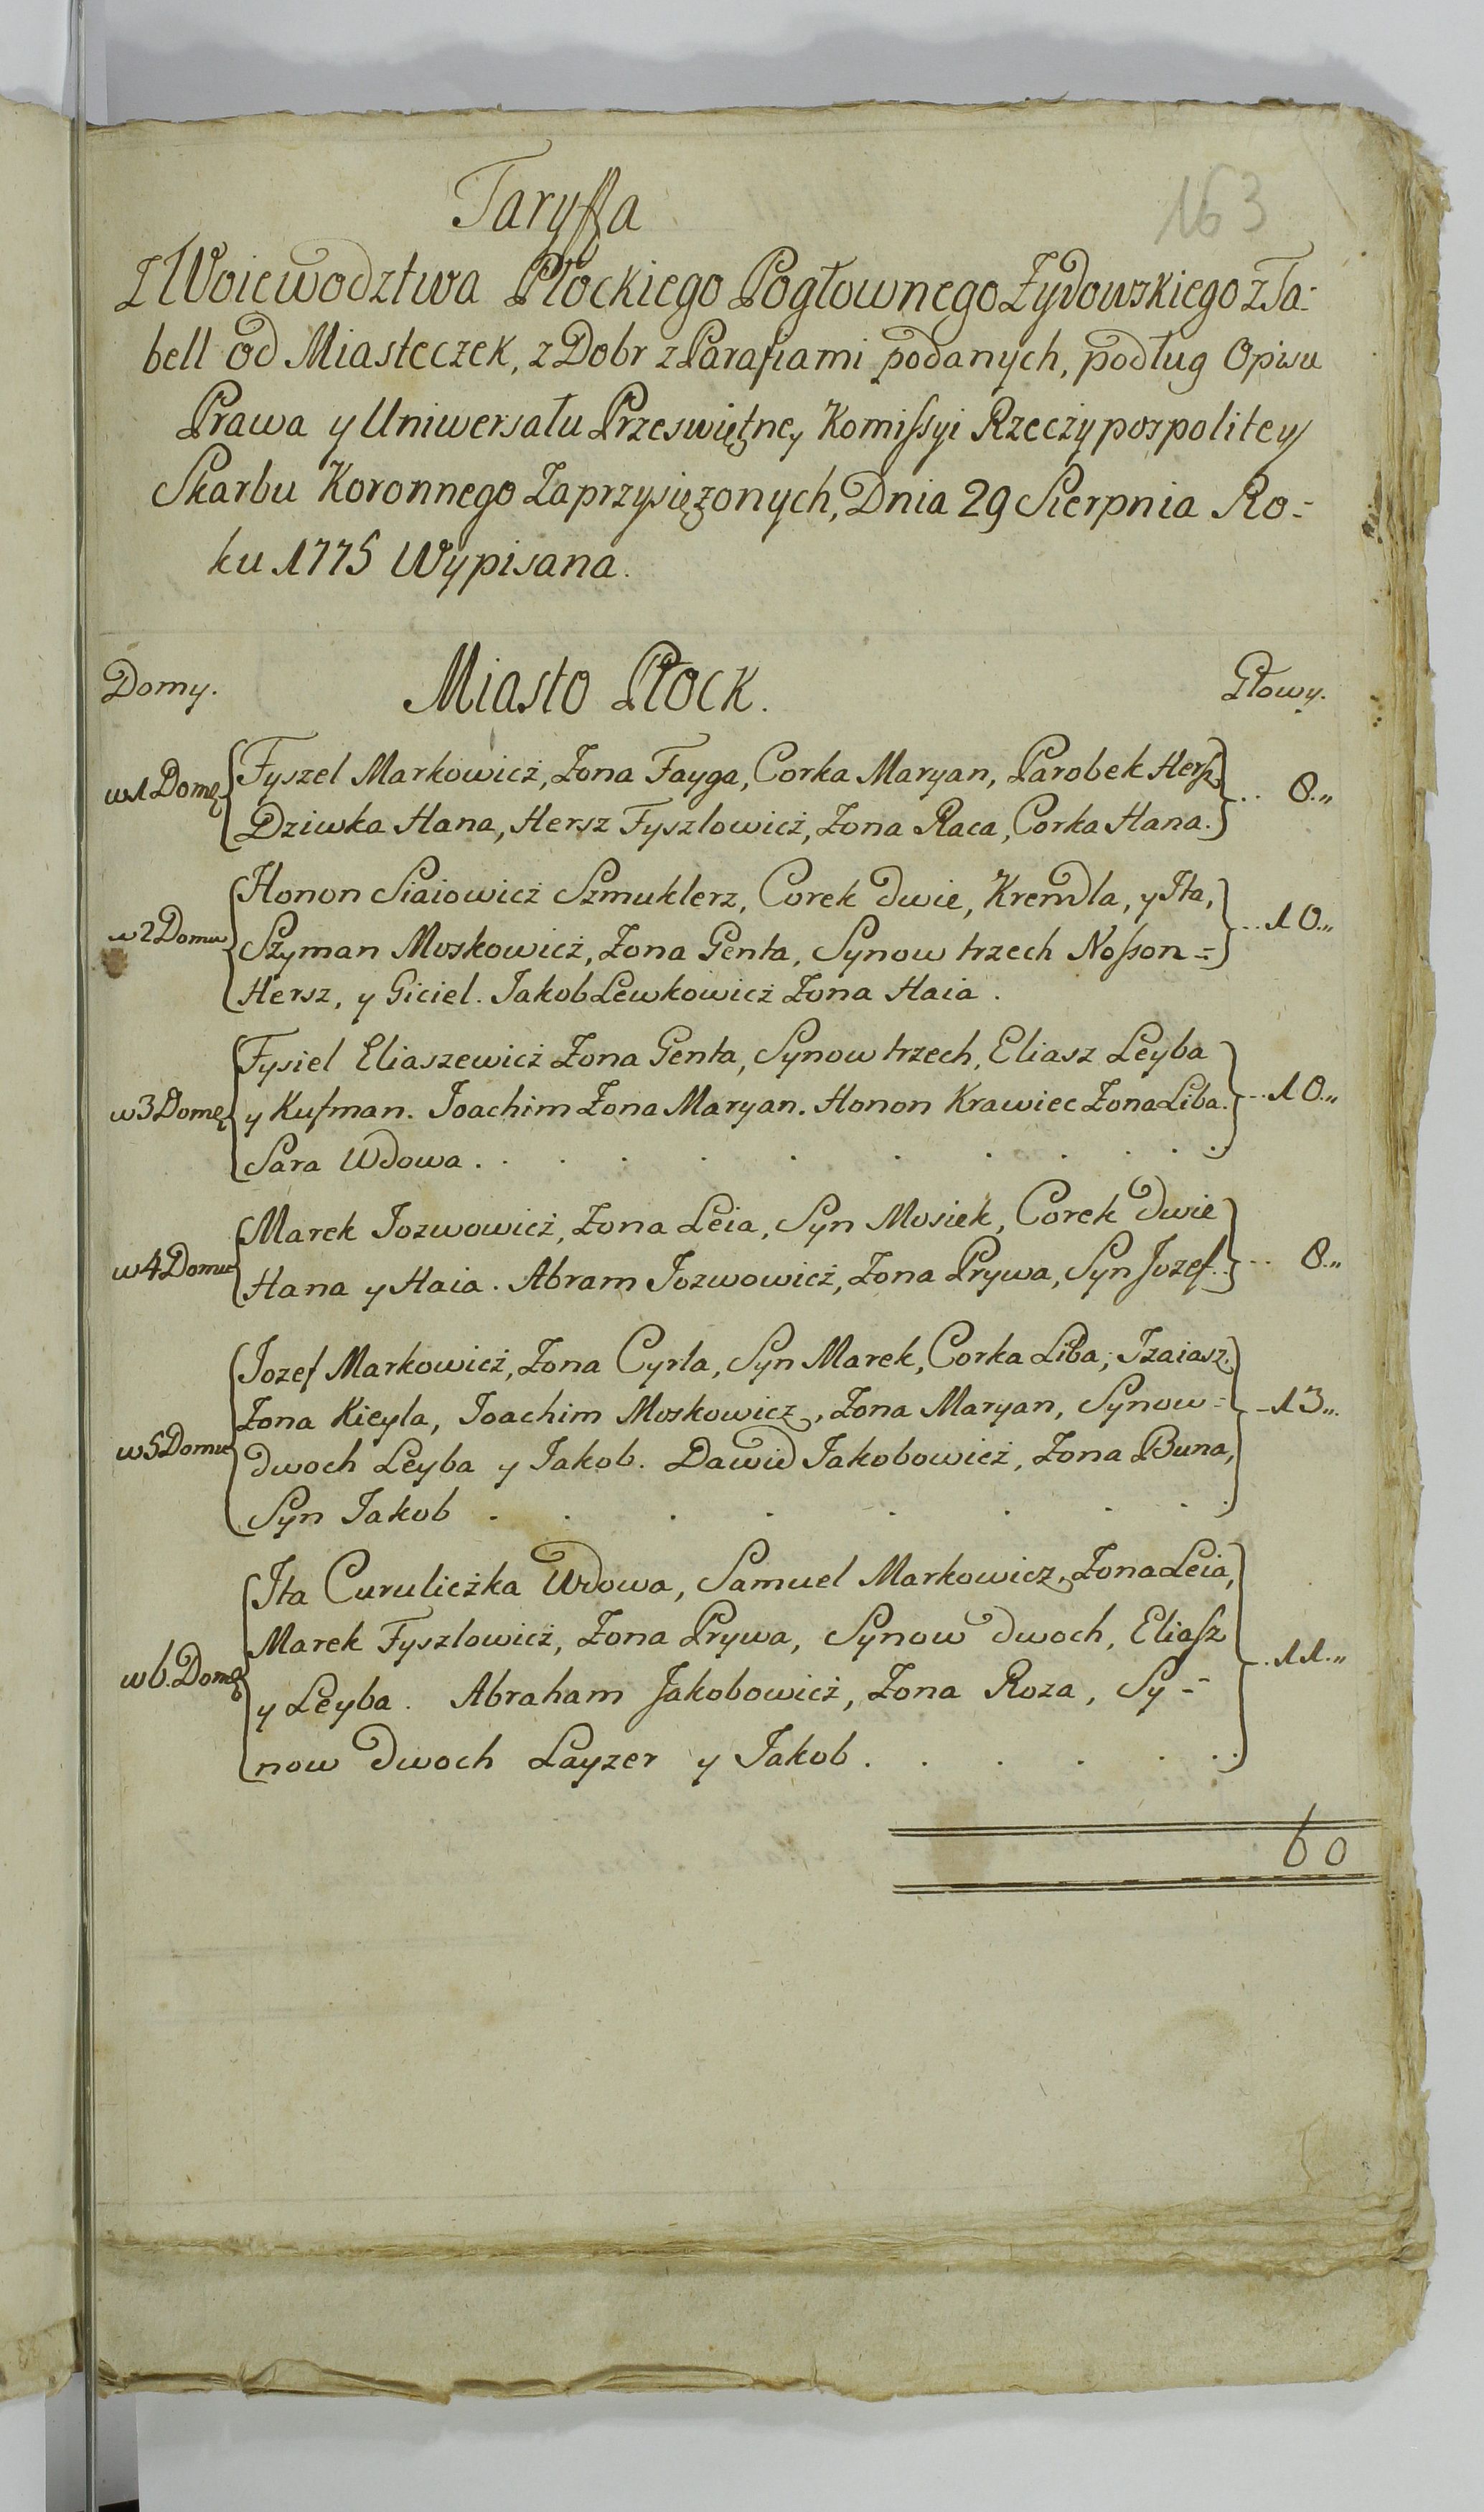 163
Taryffa
Z Woiewodztwa Płockiego Pogłownego Żydowskiego z Ta-
bell od Miasteczek, z Dobr z Parafiami podanych, podług Opisu
Prawa y Uniwersału Przeswiętney Komissyi Rzeczypospolitey
Skarbu Koronnego Zaprzysiężonych, Dnia 29 Sierpnia Ro-
ku 1775 Wypisana.
Domy. Miasto Płock. Głowy.
w 1 Domu Fyszel Markowicz, Żona Fayga, Corka Maryan, Parobek Hersz,
Dziwka Hana, Hersz Fyszlowicz, Żona Raca, Corka Hana. .. 8.,,
w 2 Domu Honon Siaiowicz Szmuklerz, Corek dwie, Kreindla, y Ita,
Szyman Moskowicz, Żona Genta, Synow trzech Nosson= ..10.,,
Hersz, y Giciel. Jakob Lewkowicz Żona Haia.
Fysiel Eliaszewicz Żona Genta, Synow trzech, Eliasz Leyba
w 3 Domu y Kufman. Joachim Żona Maryan. Honon Krawiec Żona Liba. ...10.,,
Sara Wdowa . . . . . . . . . .
Marek Jozwowicz, Żona Leia, Syn Mosiek, Corek dwie
w 4 Domu Hana y Haia. Abram Jozwowicz, Żona Prywa, Syn Jozef. ... 8.,,
Jozef Markowicz, Żona Cyrla, Syn Marek, Corka Liba, Izaiasz.
Żona Kieyla, Joachim Moskowicz, Żona Maryan, Synow= -13.,,
w 5 Domu dwoch Leyba y Jakob. Dawid Jakobowicz, Żona Buna,
Syn Jakob . . . . . . . .
Ita Curuliczka Wdowa, Samuel Markowicz, Żona Leia,
Marek Fyszlowicz, Żona Prywa, Synow dwoch, Eliasz
w 6. Domu y Leyba. Abraham Jakobowicz, Żona Roza, Sy= ..11.,,
now dwoch Layzer y Jakob . . . . . .
60